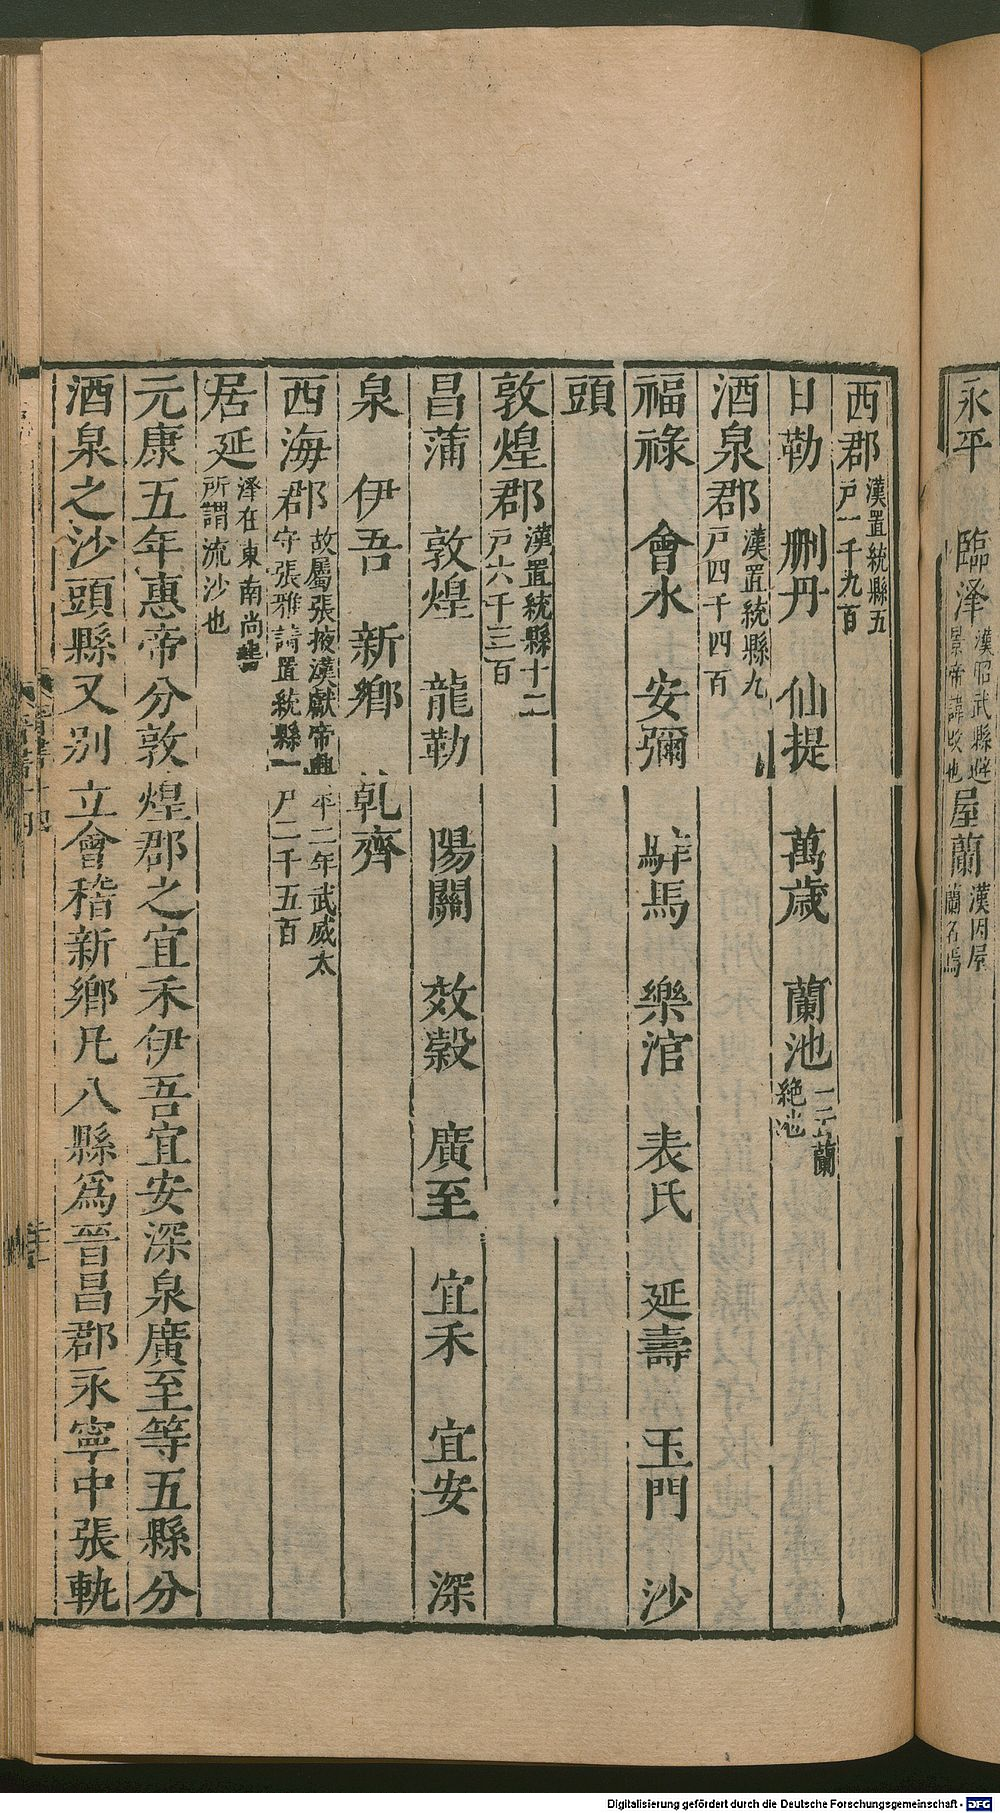 永平 臨澤漢昭武縣避景帝諱改也 屋蘭漢因屋蘭名焉
西郡漢置統縣五戶一千九百
日勒 刪丹 仙提 萬歲 蘭池一云蘭絕池
酒泉郡漢置統縣九戶四千四百
福祿 會水 安彌 騂馬 樂涫 表氏 延壽 玉門 沙
頭
敦煌郡漢置統縣十二戶六千三百
昌蒲 敦煌 龍勒 陽關 效穀 廣至 宜禾 宜安 深
泉 伊吾 新鄉 乾齊
西海郡故屬張掖漢獻帝興平二年武威太守張雅請置統縣一戶二千五百
居延澤在東南尚書所謂流沙也
元康五年惠帝分敦煌郡之宜禾伊吾宜安深泉廣至等五縣分
酒泉之沙頭縣又別立會稽新鄉凡八縣爲晉昌郡永寧中張軌
Digitalisierung gefördert durch die Deutsche Forschungsgemeinschaft - DFG